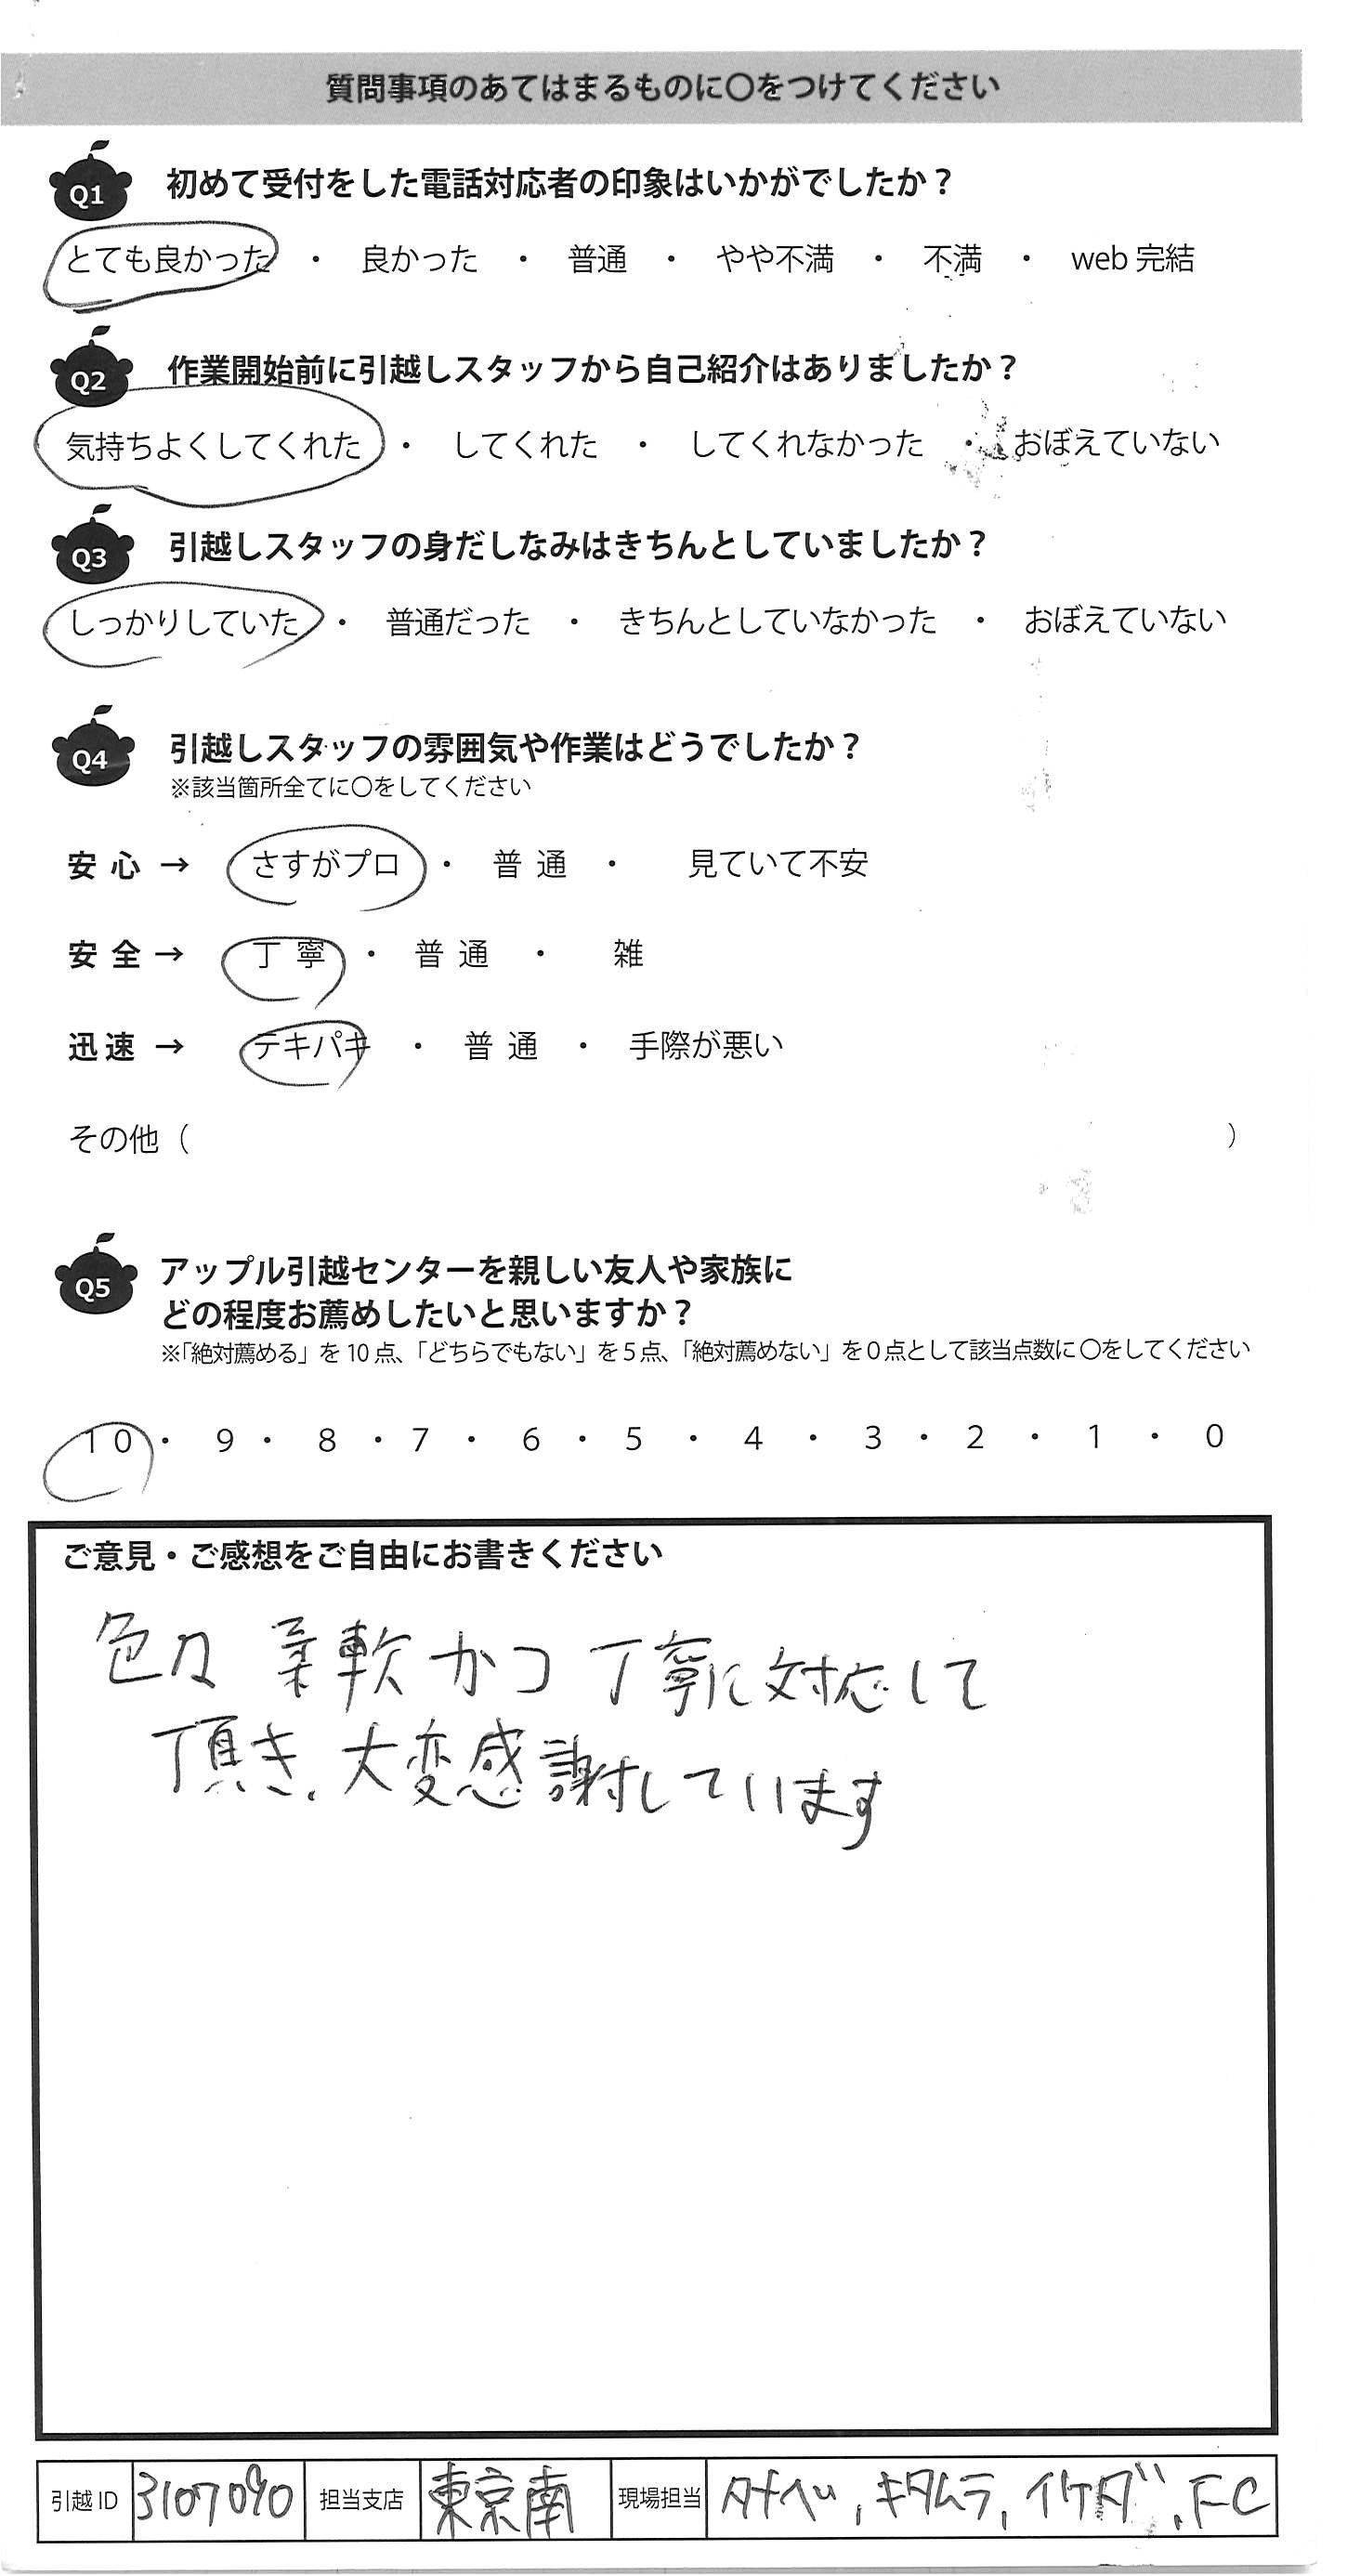 質問事項のあてはまるものに〇をつけてください
Q1 初めて受付をした電話対応者の印象はいかがでしたか？
とても良かった ・ 良かった ・ 普通 ・ やや不満 ・ 不満 ・ web 完結
Q2 作業開始前に引越しスタッフから自己紹介はありましたか？
気持ちよくしてくれた ・ してくれた ・ してくれなかった ・ おぼえていない
Q3 引越しスタッフの身だしなみはきちんとしていましたか？
しっかりしていた ・ 普通だった ・ きちんとしていなかった ・ おぼえていない
Q4 引越しスタッフの雰囲気や作業はどうでしたか？
※該当箇所全てに〇をしてください
安心 → さすがプロ ・ 普通 ・ 見ていて不安
安全 → 丁寧 ・ 普通 ・ 雑
迅速 → テキパキ ・ 普通 ・ 手際が悪い
その他（ ）
Q5 アップル引越センターを親しい友人や家族に
どの程度お薦めしたいと思いますか？
※「絶対薦める」を10点、「どちらでもない」を5点、「絶対薦めない」を0点として該当点数に〇をしてください
10 ・ 9 ・ 8 ・ 7 ・ 6 ・ 5 ・ 4 ・ 3 ・ 2 ・ 1 ・ 0
ご意見・ご感想をご自由にお書きください
色々 柔軟かつ丁寧に対応して
頂き、大変感謝しています
引越ID 3107090 担当支店 東京南 現場担当 タナベ, キタムラ, イケダ, FC